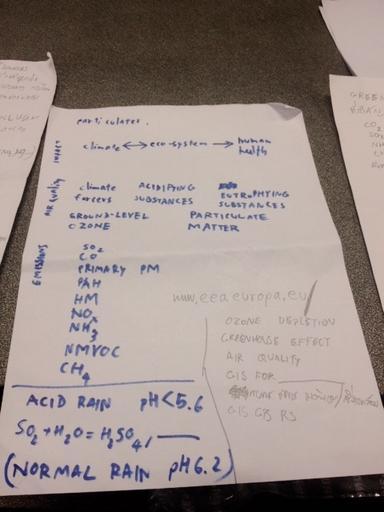 particulates.
IMPACT
climate ↔ eco-system → human health
AIR QUALITY
climate forcers
ACIDIFYING SUBSTANCES
EUTROPHYING SUBSTANCES
GROUND-LEVEL OZONE
PARTICULATE MATTER
EMISSIONS
SO2
CO
PRIMARY PM
PAH
HM
NOx
NH3
NMVOC
CH4
www.eea.europa.eu/
OZONE DEPLETION
GREENHOUSE EFFECT
AIR QUALITY
GIS FOR
GIS GPS RS
ACID RAIN pH<5.6
SO2 + H2O = H2SO4,
(NORMAL RAIN pH 6.2)
GREEN
CO2